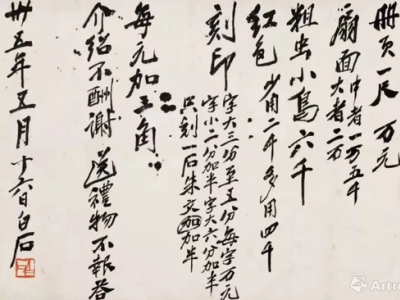 册页一尺万元
扇面中者一万五千
大者二万
粗虫小鸟六千
红色少用二千多用四千
刻印字大三分至五分每字万元
字小二分加半字大六分加半
只刻一石朱文加半
每元加三角
介绍不酬谢送禮物不報答
卅五年五月十六日白石
Artro